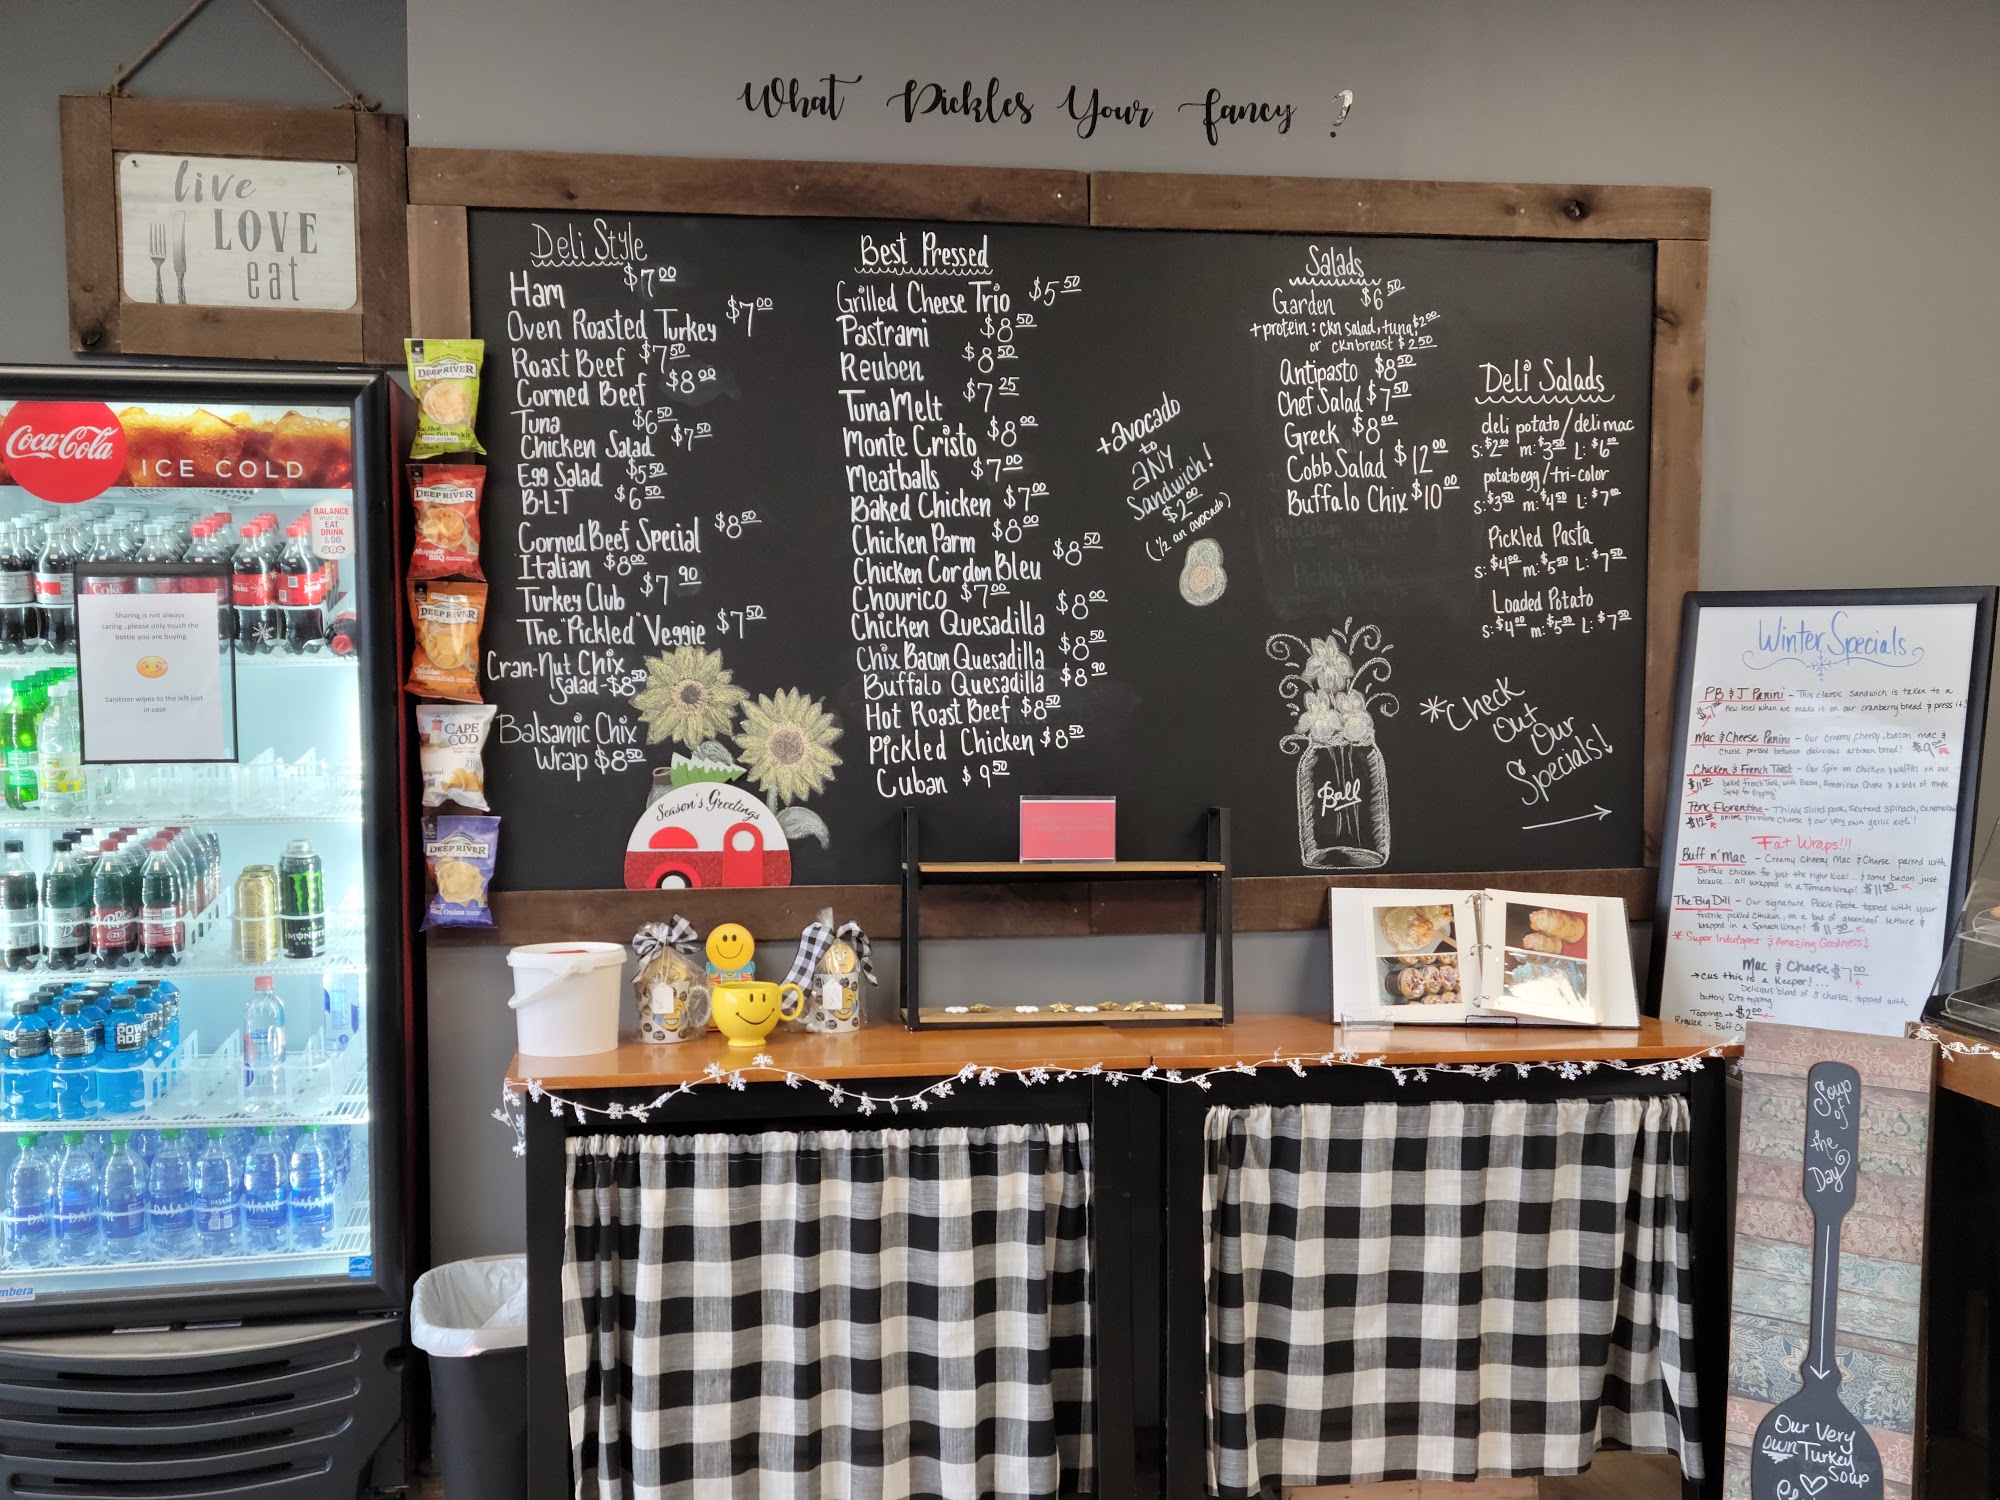 What Pickles Your Fancy ?
live
LOVE
eat
Coca-Cola
ICE COLD
BALANCE
WHAT YOU
EAT
DRINK
& DO
Sharing is not always
caring...please only touch the
bottle you are buying.
Sanitizer wipes to the left just
in case
DEEP RIVER
DEEP RIVER
Mesquite
BBQ
DEEP RIVER
Cheddar
Horseradish
CAPE
COD
Original
DEEP RIVER
Maui Onion
Deli Style
Ham $7.00
Oven Roasted Turkey $7.00
Roast Beef $7.50
Corned Beef $8.00
Tuna $6.50
Chicken Salad $7.50
Egg Salad $5.50
B·L·T $6.50
Corned Beef Special $8.50
Italian $8.00
Turkey Club $7.90
The "Pickled" Veggie $7.50
Cran-Nut Chix
Salad-$8.50
Balsamic Chix
Wrap $8.50
Season's Greetings
Best Pressed
Grilled Cheese Trio $5.50
Pastrami $8.50
Reuben $8.50
Tuna Melt $7.25
Monte Cristo $8.00
Meatballs $7.00
Baked Chicken $7.00
Chicken Parm $8.00
Chicken Cordon Bleu $8.50
Chourico $7.00
Chicken Quesadilla $8.00
Chix Bacon Quesadilla $8.50
Buffalo Quesadilla $8.90
Hot Roast Beef $8.50
Pickled Chicken $8.50
Cuban $9.50
+ avocado
to
ANY
Sandwich!
$2.00
(1/2 an avocado)
Salads
Garden $6.50
+protein: ckn salad, tuna, $2.00
or ckn breast $2.50
Antipasto $8.50
Chef Salad $7.50
Greek $8.00
Cobb Salad $12.00
Buffalo Chix $10.00
Deli Salads
deli potato/deli mac
S: $2.00 m: $3.50 L: $6.00
potato egg/tri-color
S: $3.50 m: $4.50 L: $7.00
Pickled Pasta
S: $4.00 m: $5.50 L: $7.50
Loaded Potato
S: $4.00 m: $5.50 L: $7.50
*Check
Out
Our
Specials!
Ball
Winter Specials
PB & J Panini - This classic sandwich is taken to a
new level when we make it on our cranberry bread & press it!
Mac & Cheese Panini - Our creamy, cheesy, bacon mac &
cheese pressed between delicious artisan bread!
Chicken & French Toast - Our spin on chicken & waffles on our
baked French Toast, with Bacon, American Cheese & a side of maple
syrup for dipping!
Pork Florentine - Thinly sliced pork, sauteed spinach, caramelized
$12.00 onions, provolone cheese & our very own garlic aioli!
Fat Wraps!!!
Buff n' Mac - Creamy cheesy Mac & Cheese paired with
Buffalo chicken for just the right kick!... & some bacon just
because... all wrapped in a Tomato Wrap! $11.50
The Big Dill - Our signature Pickle Pasta topped with your
favorite pickled chicken, on a bed of greenleaf lettuce &
wrapped in a Spinach Wrap! $11.50
* Super Indulgent & Amazing Goodness!
Mac & Cheese $7.00
→ cus this is a keeper!...
Delicious blend of 3 cheeses, topped with
buttery Ritz topping.
Toppings → $2.00
Regular - Buff Ch
Soup
of
the
Day
Our Very
own Turkey
Soup
POWERADE
MONSTER
DASANI
DASANI
DASANI
DASANI
mbera